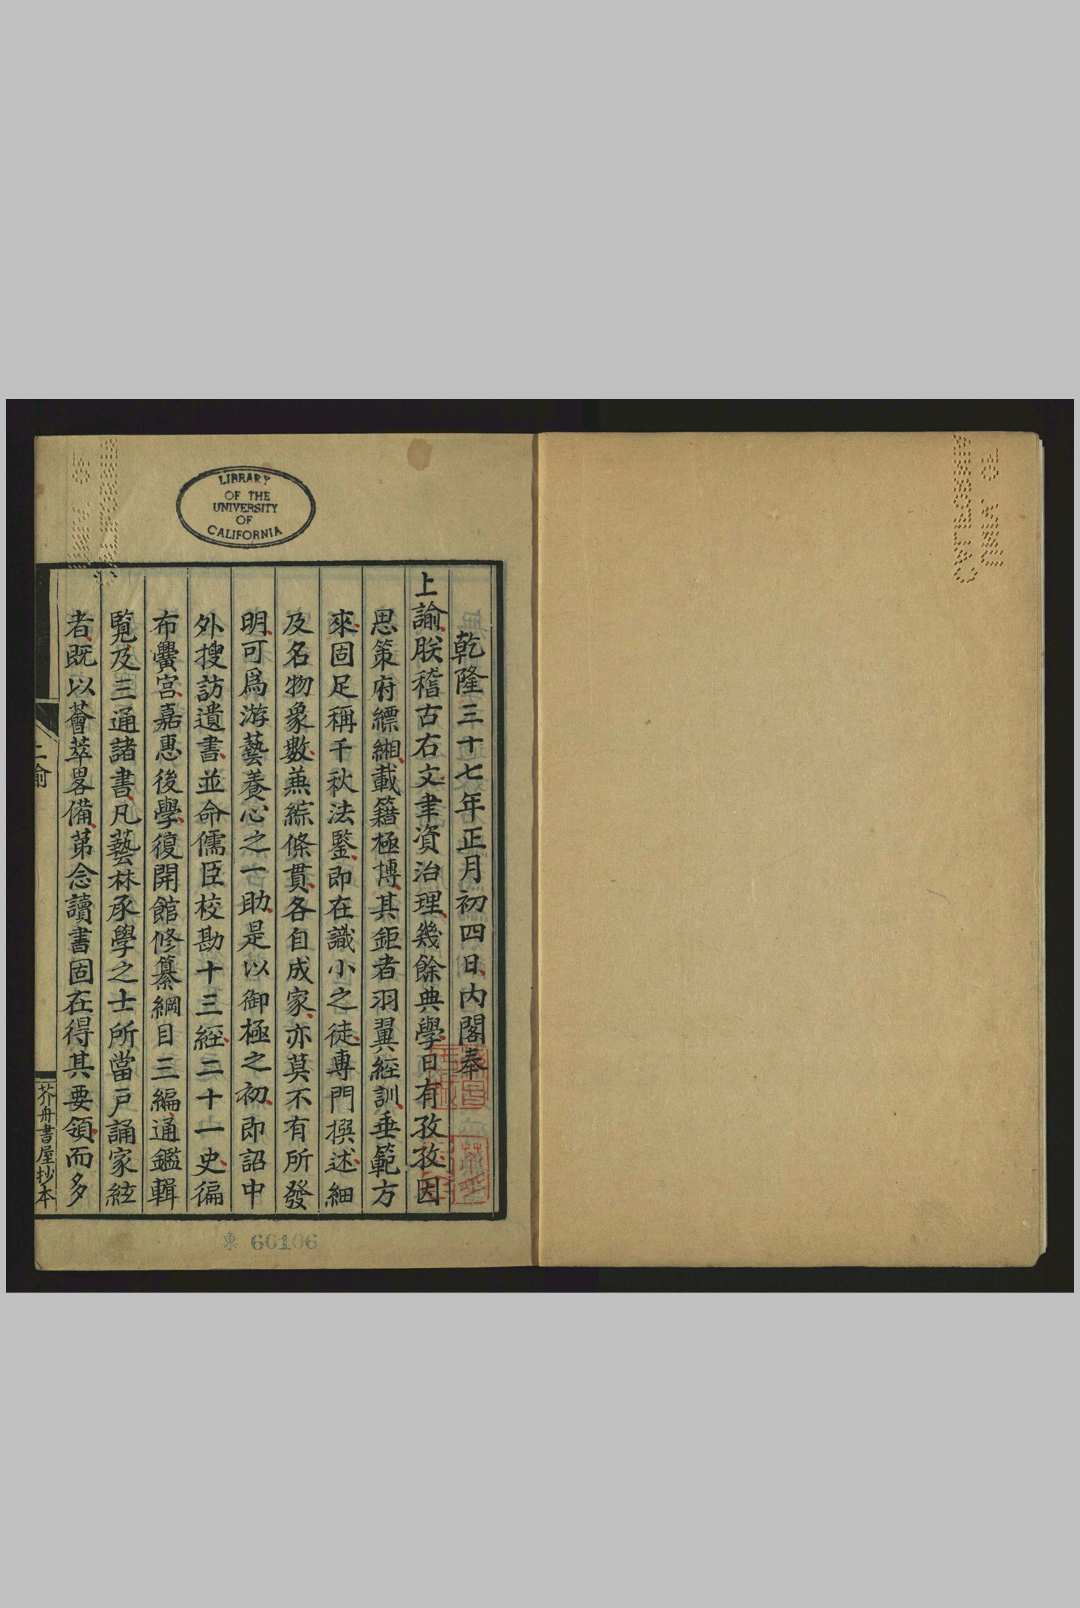 LIBRARY
OF THE
UNIVERSITY
OF
CALIFORNIA
乾隆三十七年正月初四日內閣奉
上諭朕稽古右文聿資治理幾餘典學日有孜孜因
思策府縹緗載籍極博其鉅者羽翼經訓垂範方
來固足稱千秋法鑒即在識小之徒專門撰述細
及名物象數兼綜條貫各自成家亦莫不有所發
明可爲游藝養心之一助是以御極之初即詔中
外搜訪遺書並命儒臣校勘十三經二十一史徧
布黌宮嘉惠後學復開館修纂綱目三編通鑑輯
覽及三通諸書凡藝林承學之士所當戶誦家絃
者既以薈萃畧備苐念讀書固在得其要領而多
上諭
芥舟書屋抄本
東 60106